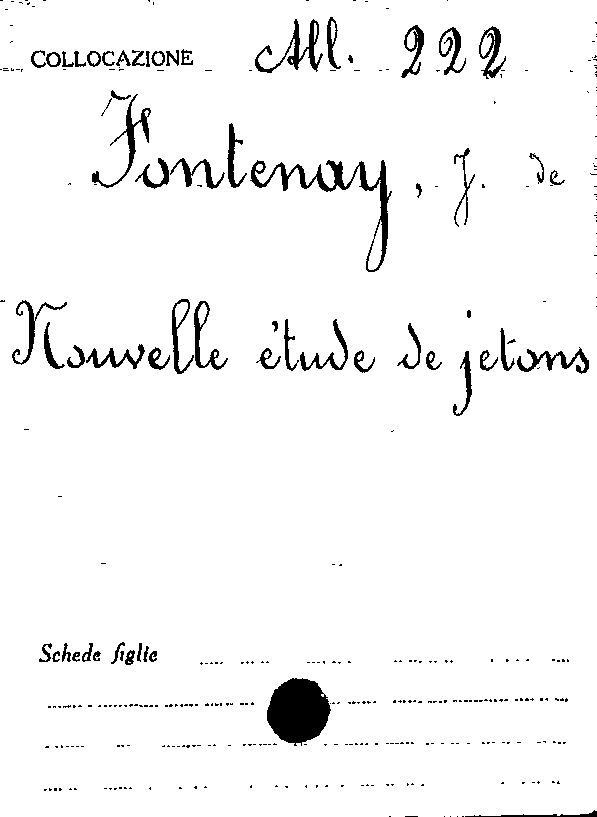 COLLOCAZIONE All. 222
Fontenay, J. de
Nouvelle étude de jetons
Schede figlie